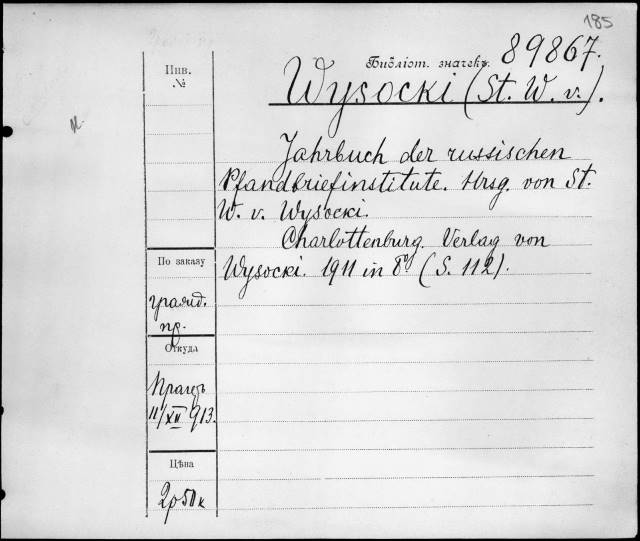 185
Библіот. значекъ 89867.
Wysocki (St. W. v.).
Инв.
№
Jahrbuch der russischen
Pfandbriefinstitute. Hrsg. von St.
W. v. Wysocki.
Charlottenburg. Verlag von
Wysocki. 1911 in 8º (S. 112).
По заказу
гражд.
пр.
Откуда
11/XII 913.
Цѣна
2р50к